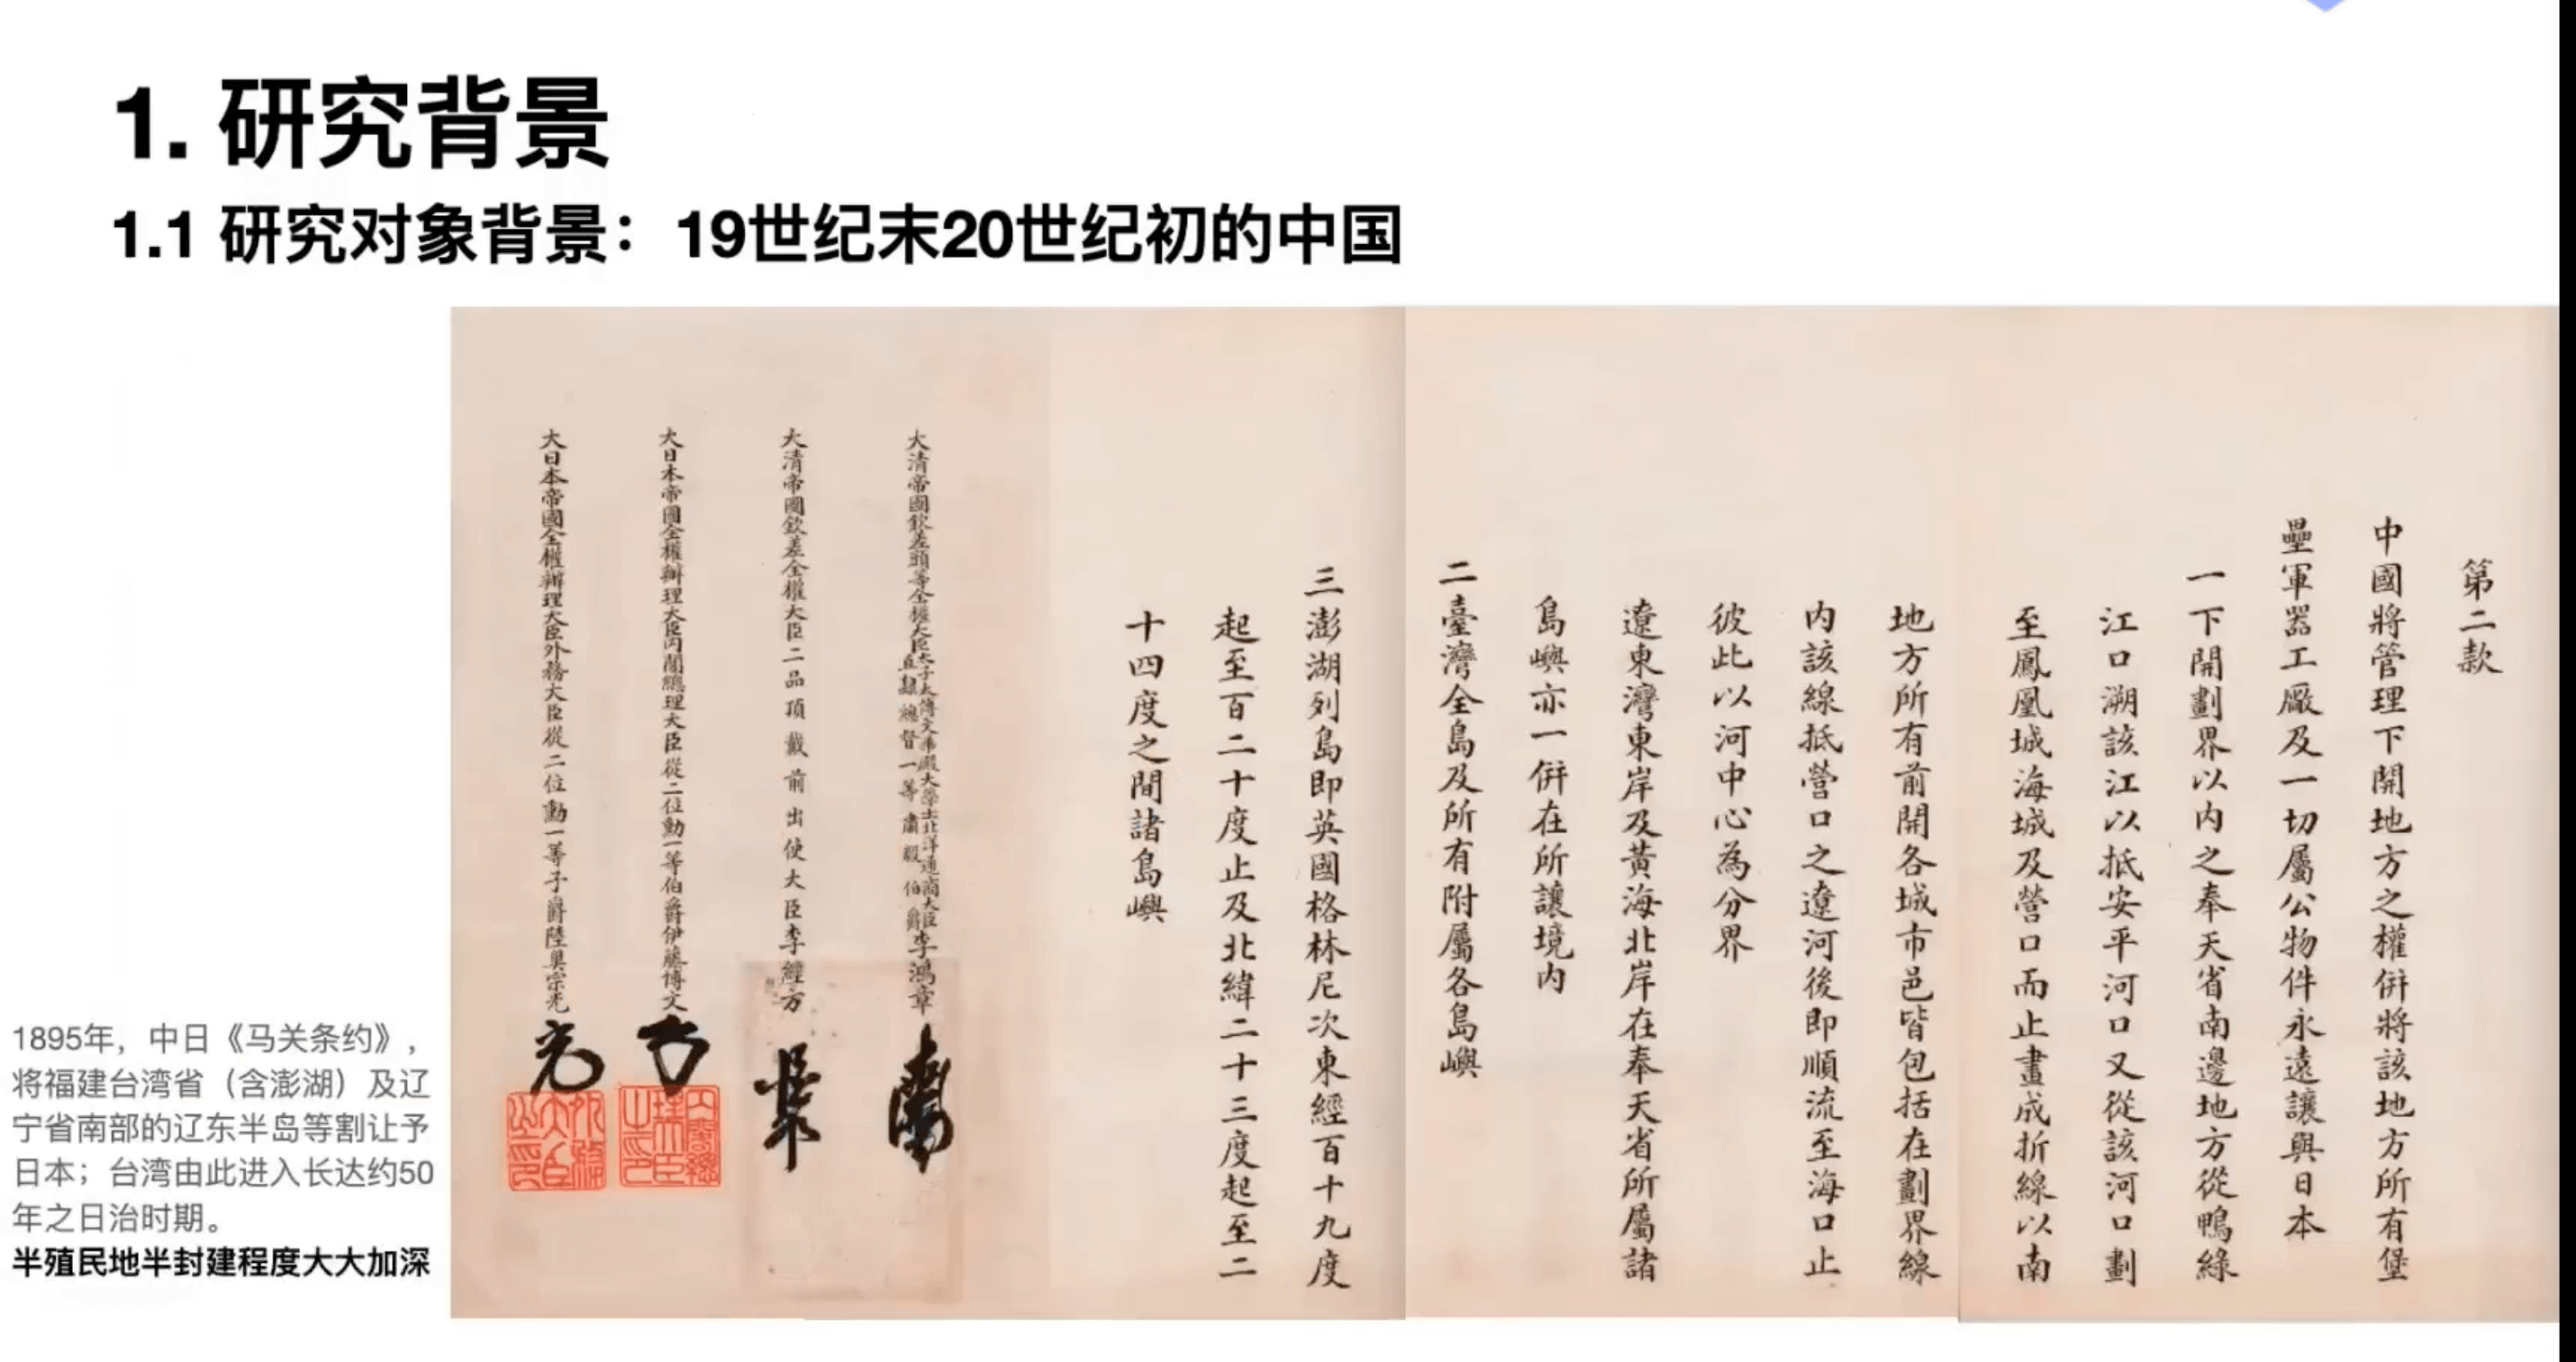 1. 研究背景
1.1 研究对象背景：19世纪末20世纪初的中国
第二款
中國將管理下開地方之權併將該地方所有堡
壘軍器工廠及一切屬公物件永遠讓與日本
一下開劃界以内之奉天省南邊地方從鴨綠
江口溯該江以抵安平河口又從該河口劃
至鳳凰城海城及營口而止畫成折線以南
地方所有前開各城市邑皆包括在劃界線
内該線抵營口之遼河後即順流至海口止
彼此以河中心為分界
遼東灣東岸及黃海北岸在奉天省所屬諸
島嶼亦一併在所讓境内
二臺灣全島及所有附屬各島嶼
三澎湖列島即英國格林尼次東經百十九度
起至百二十度止及北緯二十三度起至二
十四度之間諸島嶼
大清帝國欽差頭等全權大臣太子太傅文華殿大學士北洋通商大臣直隸總督一等肅毅伯爵李鴻章
大清帝國欽差全權大臣二品頂戴前出使大臣李經方
大日本帝國全權辦理大臣内閣總理大臣從二位勳一等伯爵伊藤博文
大日本帝國全權辦理大臣外務大臣從二位勳一等子爵陸奧宗光
1895年，中日《马关条约》，
将福建台湾省（含澎湖）及辽
宁省南部的辽东半岛等割让予
日本；台湾由此进入长达约50
年之日治时期。
半殖民地半封建程度大大加深